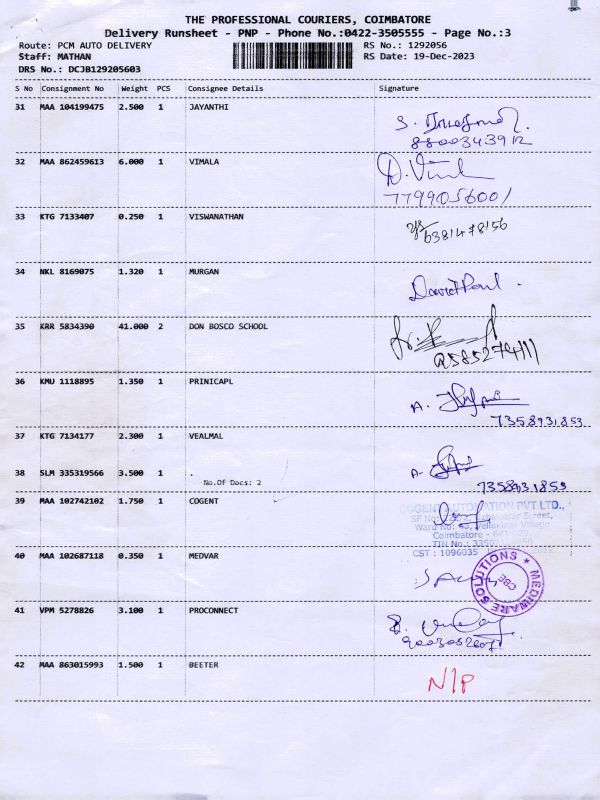 THE PROFESSIONAL COURIERS, COIMBATORE
Delivery Runsheet - PNP - Phone No.:0422-3505555 - Page No.:3
Route: PCM AUTO DELIVERY RS No.: 1292056
Staff: MATHAN RS Date: 19-Dec-2023
DRS No.: DCJB129205603
S No Consignment No Weight PCS Consignee Details Signature
31 MAA 104199475 2.500 1 JAYANTHI
32 MAA 862459613 6.000 1 VIMALA
7799056001
33 KTG 7133407 0.250 1 VISWANATHAN
6381478156
34 NKL 8169075 1.320 1 MURGAN
David Paul .
35 KRR 5834390 41.000 2 DON BOSCO SCHOOL
36 KMU 1118895 1.350 1 PRINICAPL
7358931853
37 KTG 7134177 2.300 1 VEALMAL
38 SLM 335319566 3.500 1 .
-No.Of Docs: 2
7358931853
39 MAA 102742102 1.750 1 COGENT
COGENT AUTOMATION PVT LTD.,
Coimbatore
TIN No.
CST : 1096035
40 MAA 102687118 0.350 1 MEDVAR
MEDIWARE SOLUTIONS ★
CBE
41 VPM 5278826 3.100 1 PROCONNECT
42 MAA 863015993 1.500 1 BEETER
N/P